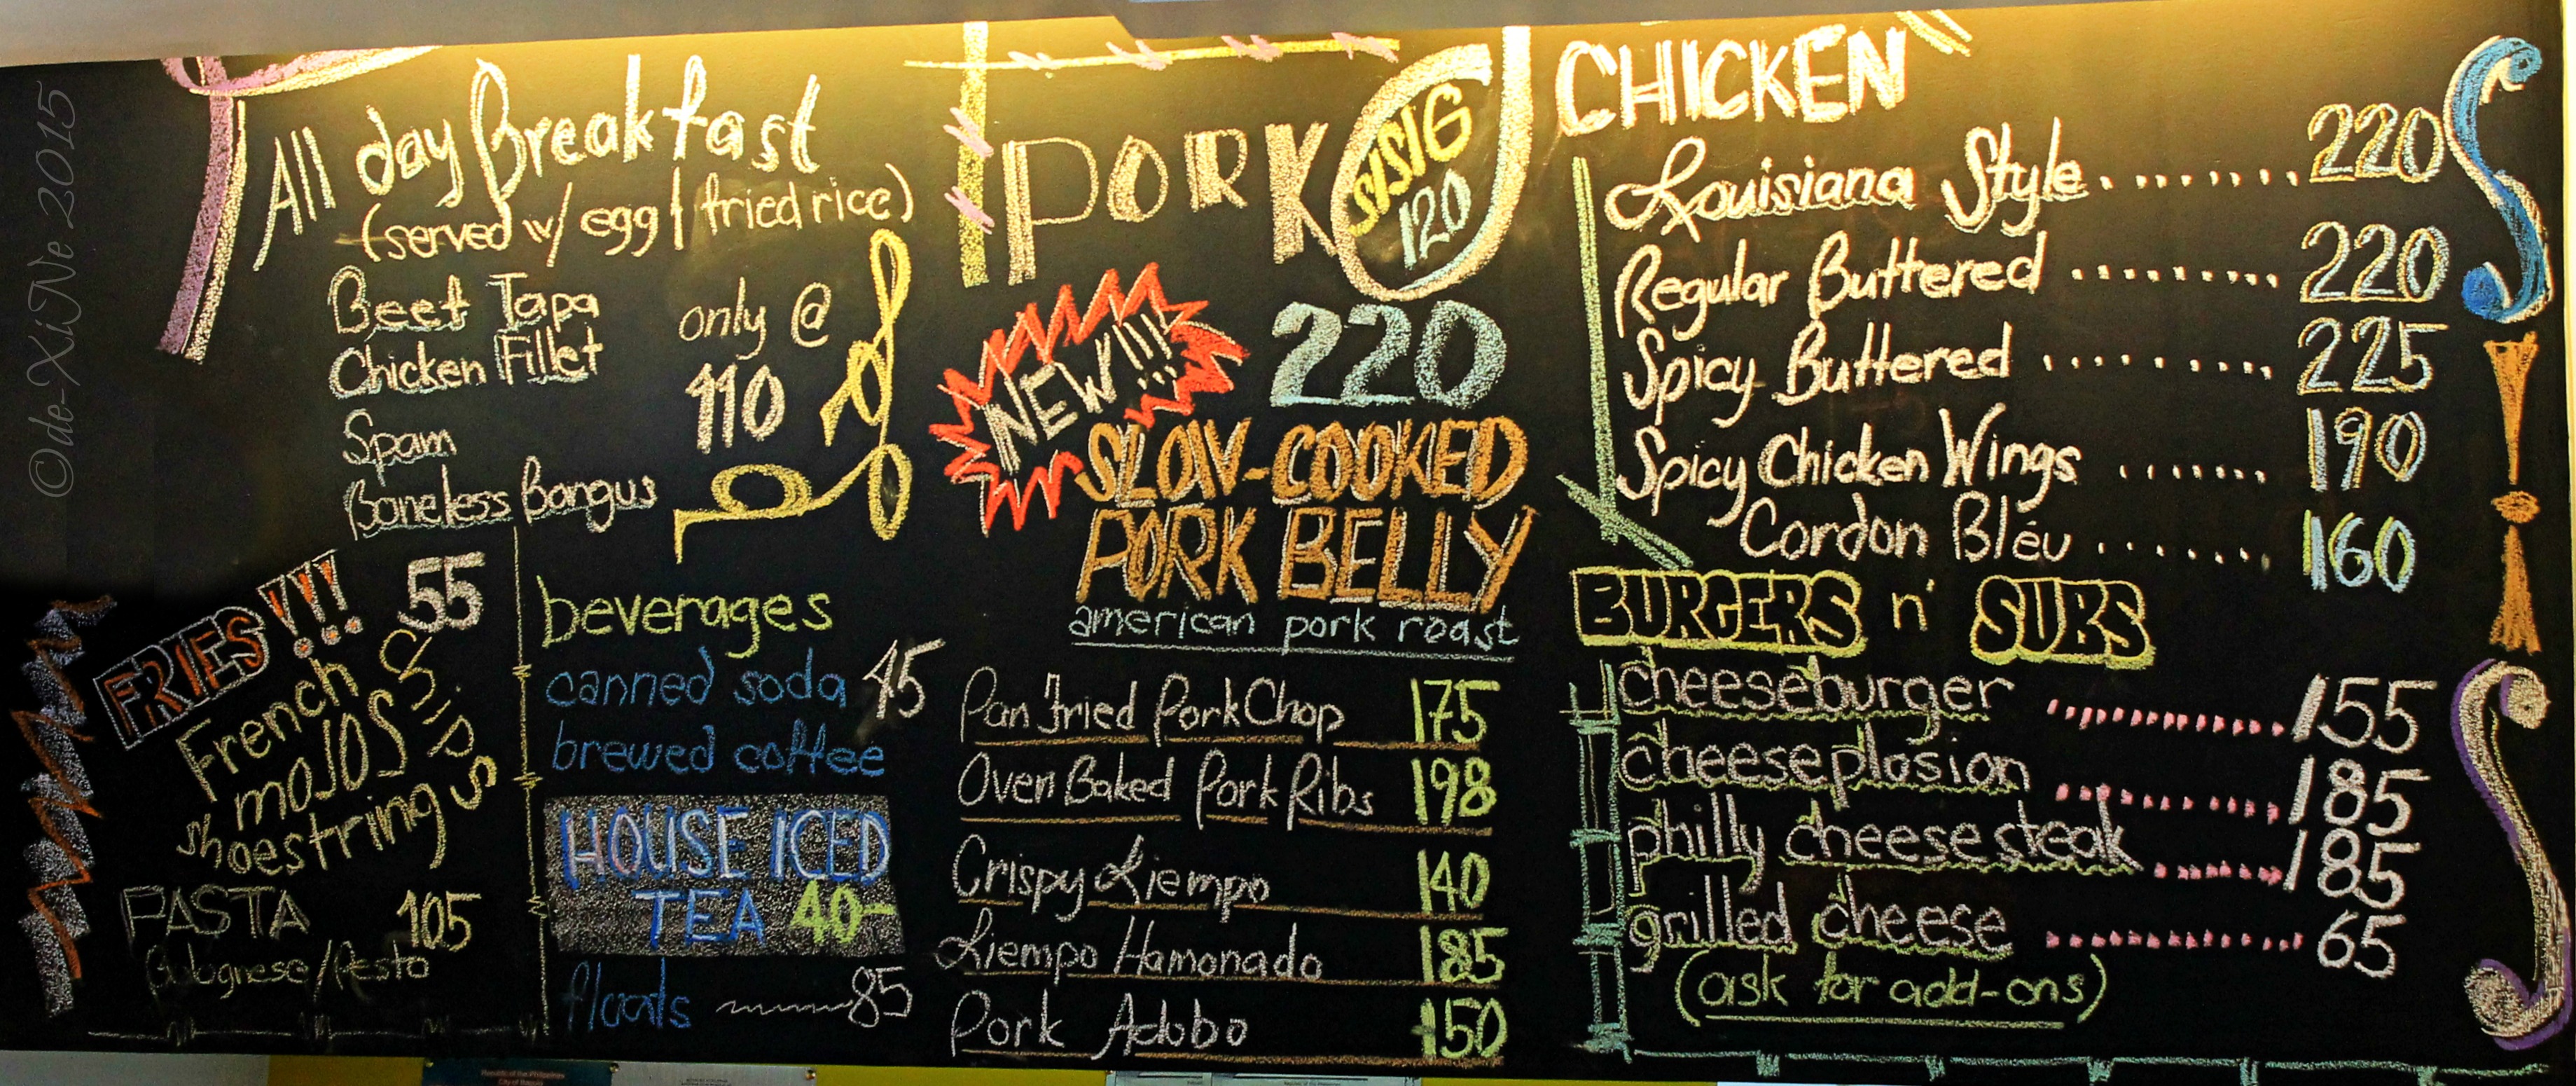 ©de-XiNe 2015
All day Breakfast
(served w/ egg | fried rice)
Beef Tapa
Chicken Fillet
Spam
Boneless Bangus
only @
110
FRIES!!! 55
French
mojos
shoestring
Chips
PASTA 105
Bolognese/Pesto
beverages
canned soda 45
brewed coffee
HOUSE ICED
TEA 40-
floats 85
PORK
SISIG
120
NEW!!!
220
SLOW-COOKED
PORK BELLY
american pork roast
Pan Fried Pork Chop 175
Oven Baked Pork Ribs 198
Crispy Liempo 140
Liempo Hamonado 185
Pork Adobo 150
CHICKEN
Louisiana Style.........220
Regular Buttered .........220
Spicy Buttered ........225
Spicy Chicken Wings .......190
Cordon Bleu .......160
BURGERS n' SUBS
cheeseburger ............155
cheeseplosion ...........185
philly cheese steak .......185
grilled cheese ............65
(ask for add-ons)
Republic of the Philippines